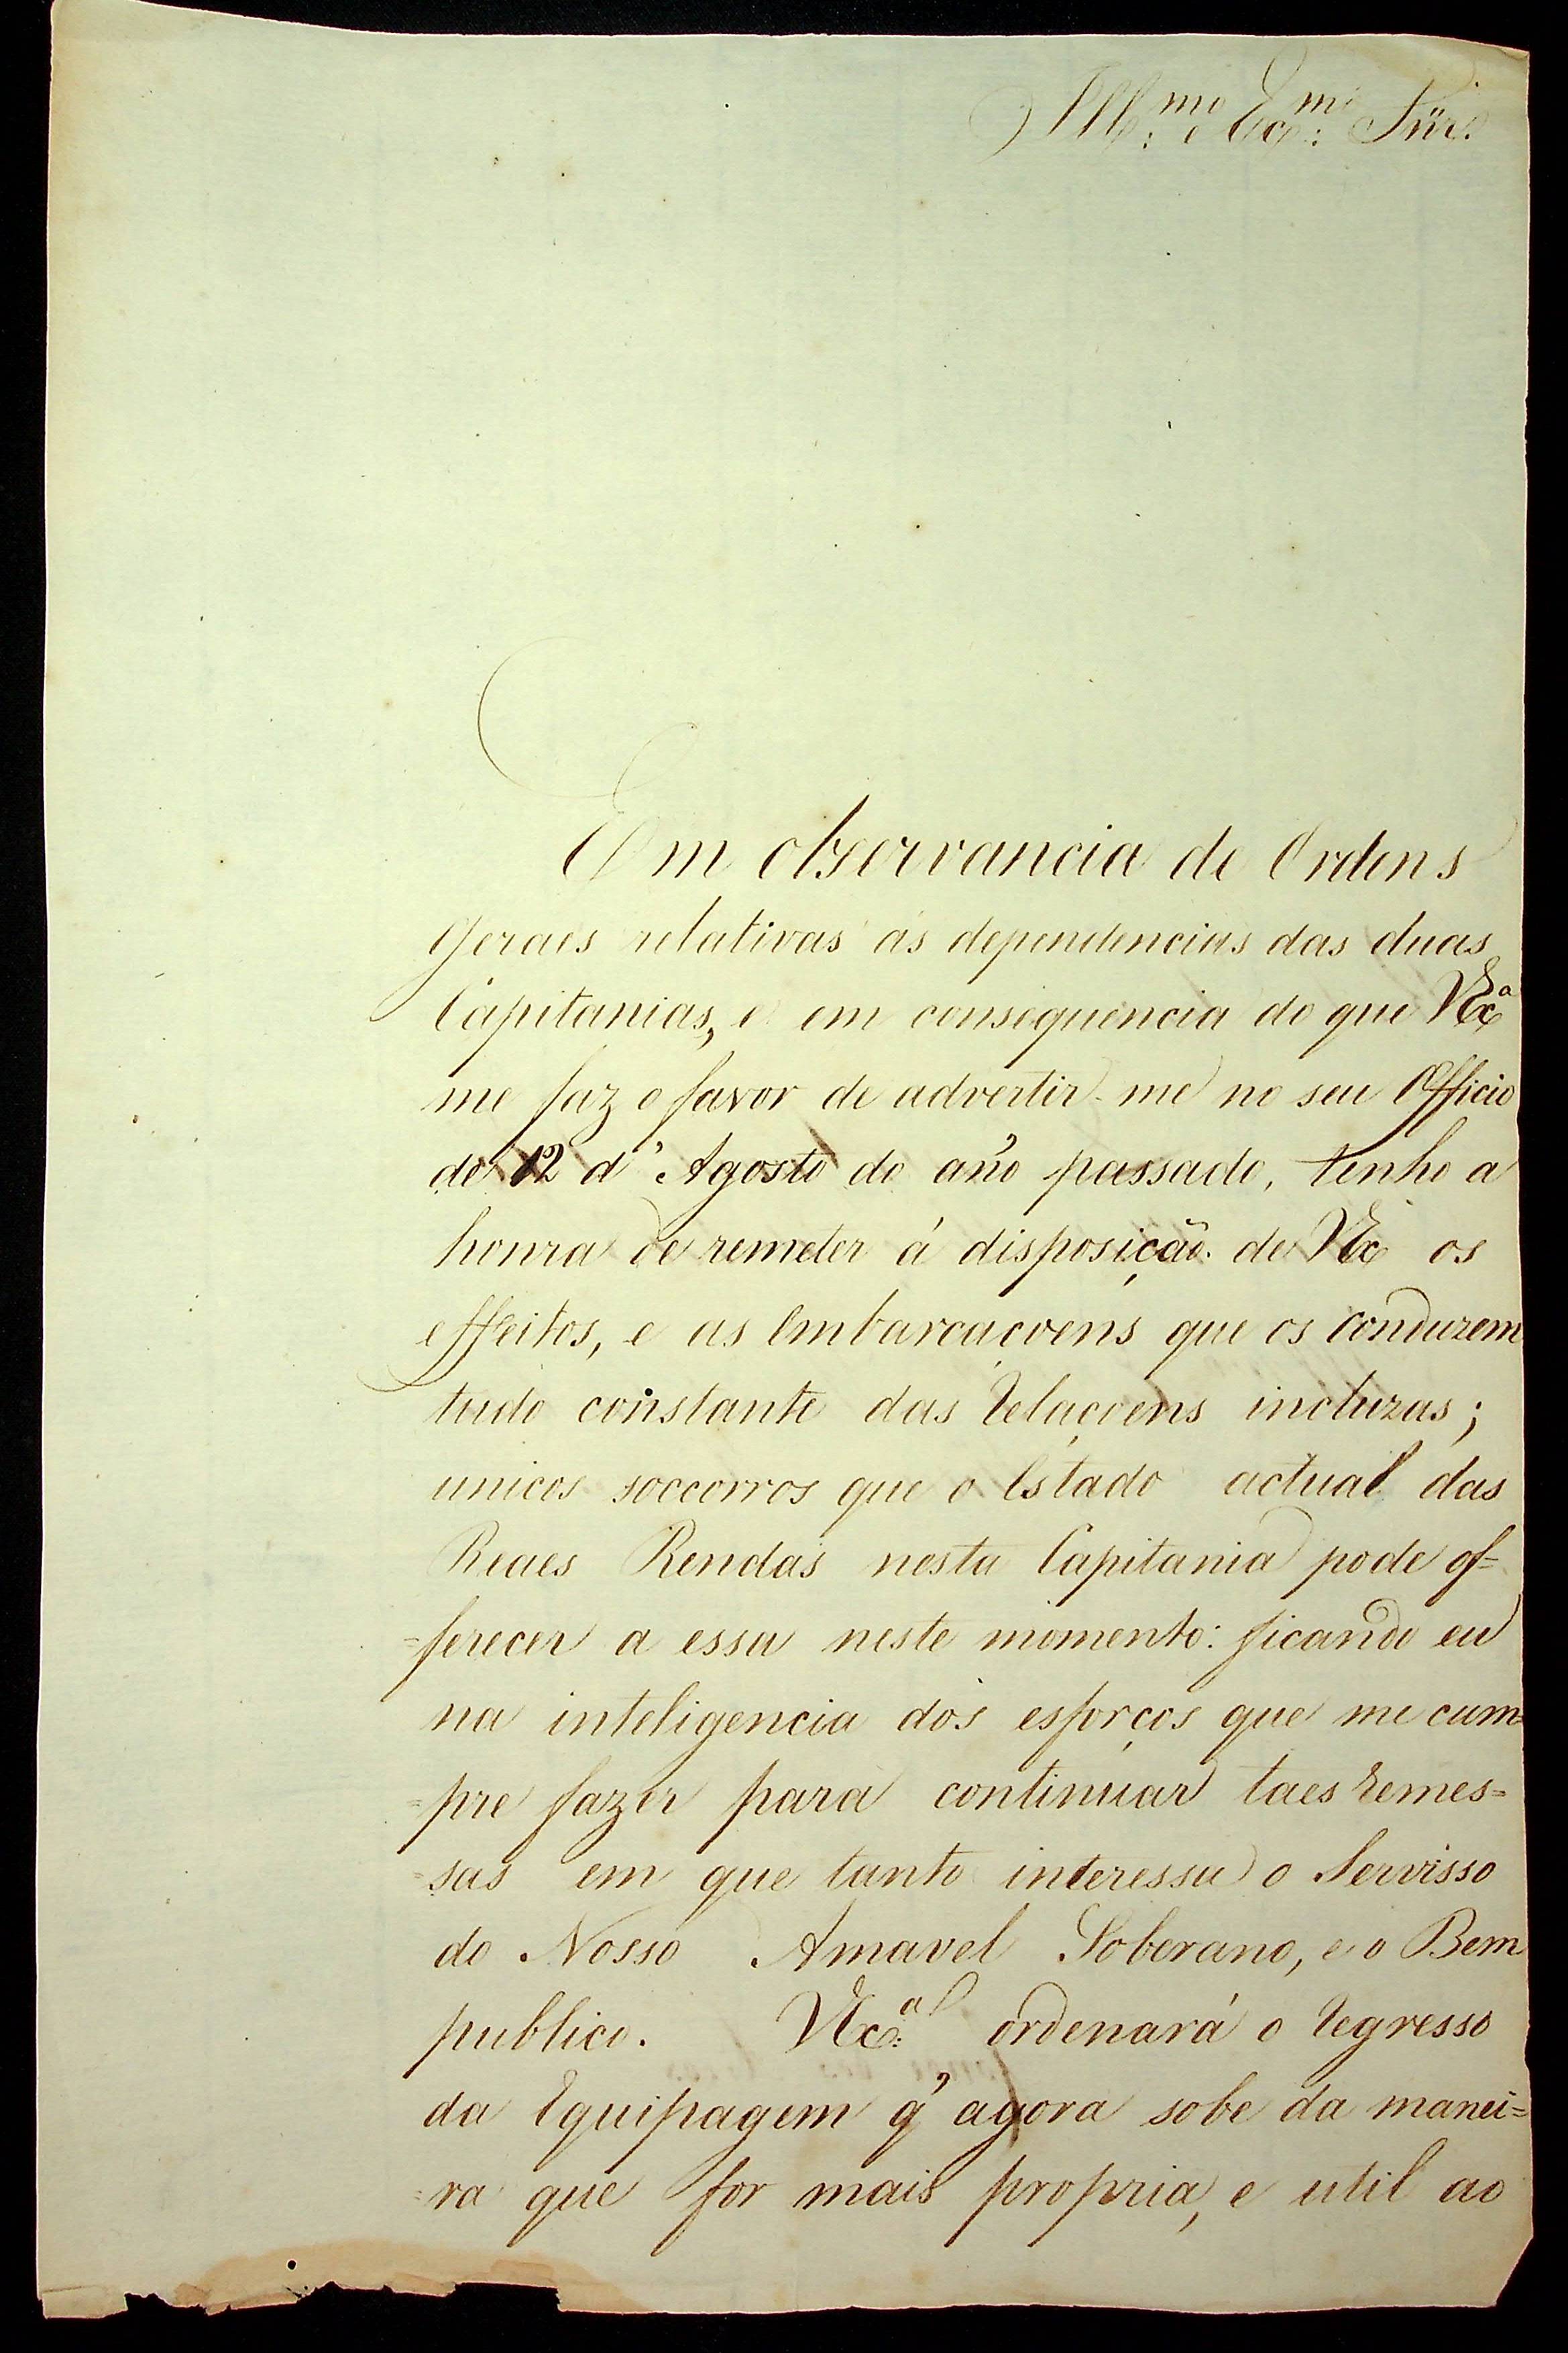 Ill.mo e Ex.mo Sñr.
Em observancia de Ordens
Geraes relativas ás dependencias das duas
Capitanias, e em consequencia do que VEx.ª
me faz o favor de advertir-me no seu Officio
de 12 d'Agosto do año passado, tenho a
honra de remeter á disposição de VEx os
effeitos, e as Embarcaçoens que os conduzem
tudo constante das Relaçoens incluzas;
unicos soccorros que o Estado actual das
Reaes Rendas nesta Capitania pode of=
=ferecer a essa neste momento: ficando eu
na inteligencia dos esforços que me cum=
=pre fazer para continuar taes remes=
=sas em que tanto interessa o Servisso
do Nosso Amavel Soberano, e o Bem
publico. VEx.ª ordenará o regresso
da Equipagem q' agora sobe da manei=
=ra que for mais propria, e util ao